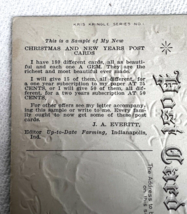 This is a Sample of My New
CHRISTMAS AND NEW YEARS POST
CARDS
I have 180 different cards, all as beauti-
ful and each one A GEM. They are the
richest and most beautiful ever made.
I will give 15 of them, all different, for
a one year subscription to my paper AT 25
CENTS, or I will give 50 of them, all dif-
ferent, for a two years subscription AT 50
CENTS.
For other offers see my letter accompany-
ing this sample or write to me. Every fam-
ily ought to now get some of these post
cards.
J. A. EVERITT,
Editor Up-to-Date Farming, Indianapolis,
Ind.
Post Card
The Address